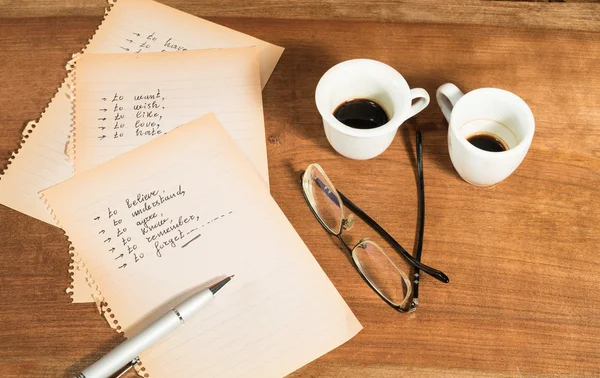 → to have
→ to
→ to want,
→ to wish.
→ to like,
→ to love,
→ to hate
→ to believe.
→ to understand,
→ to agree,
→ to know,
→ to remember,
→ to forget